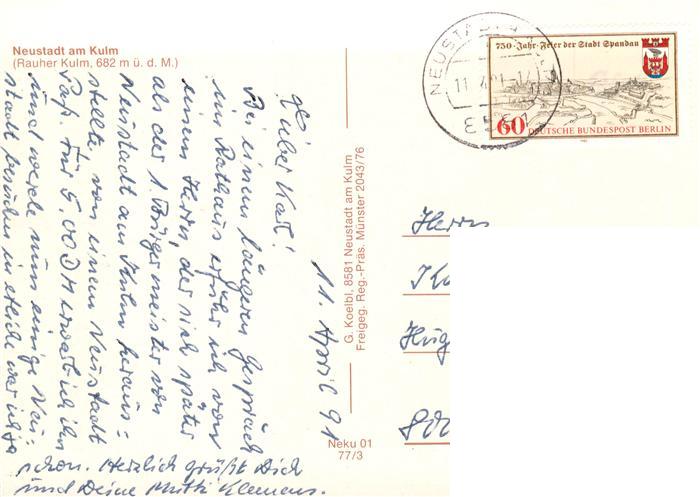 Neustadt am Kulm
(Rauher Kulm, 682 m ü. d. M.)
11. April 91
Lieber Karl!
Bei einem längeren Gespräch
im Rathaus erfuhr ich von
einem Herrn, der sich später
als der 1. Bürgermeister von
Neustadt am Kulm heraus=
stellte von einem Neustadt
Paß. Für 5,00 DM erwarb ich ihn
und werde nun einige Neu=
stadt besuchen in etliche war ich ja
schon. Herzlich grüßt Dich
und Deine Mutti Klemens.
G. Koelbl, 8581 Neustadt am Kulm
Freigeg. Reg.-Präs. Münster 2043/76
Neku 01
77/3
NEUSTADT A
8581
750-Jahr-Feier der Stadt Spandau
60 DEUTSCHE BUNDESPOST BERLIN
Herrn
Ka
Hug